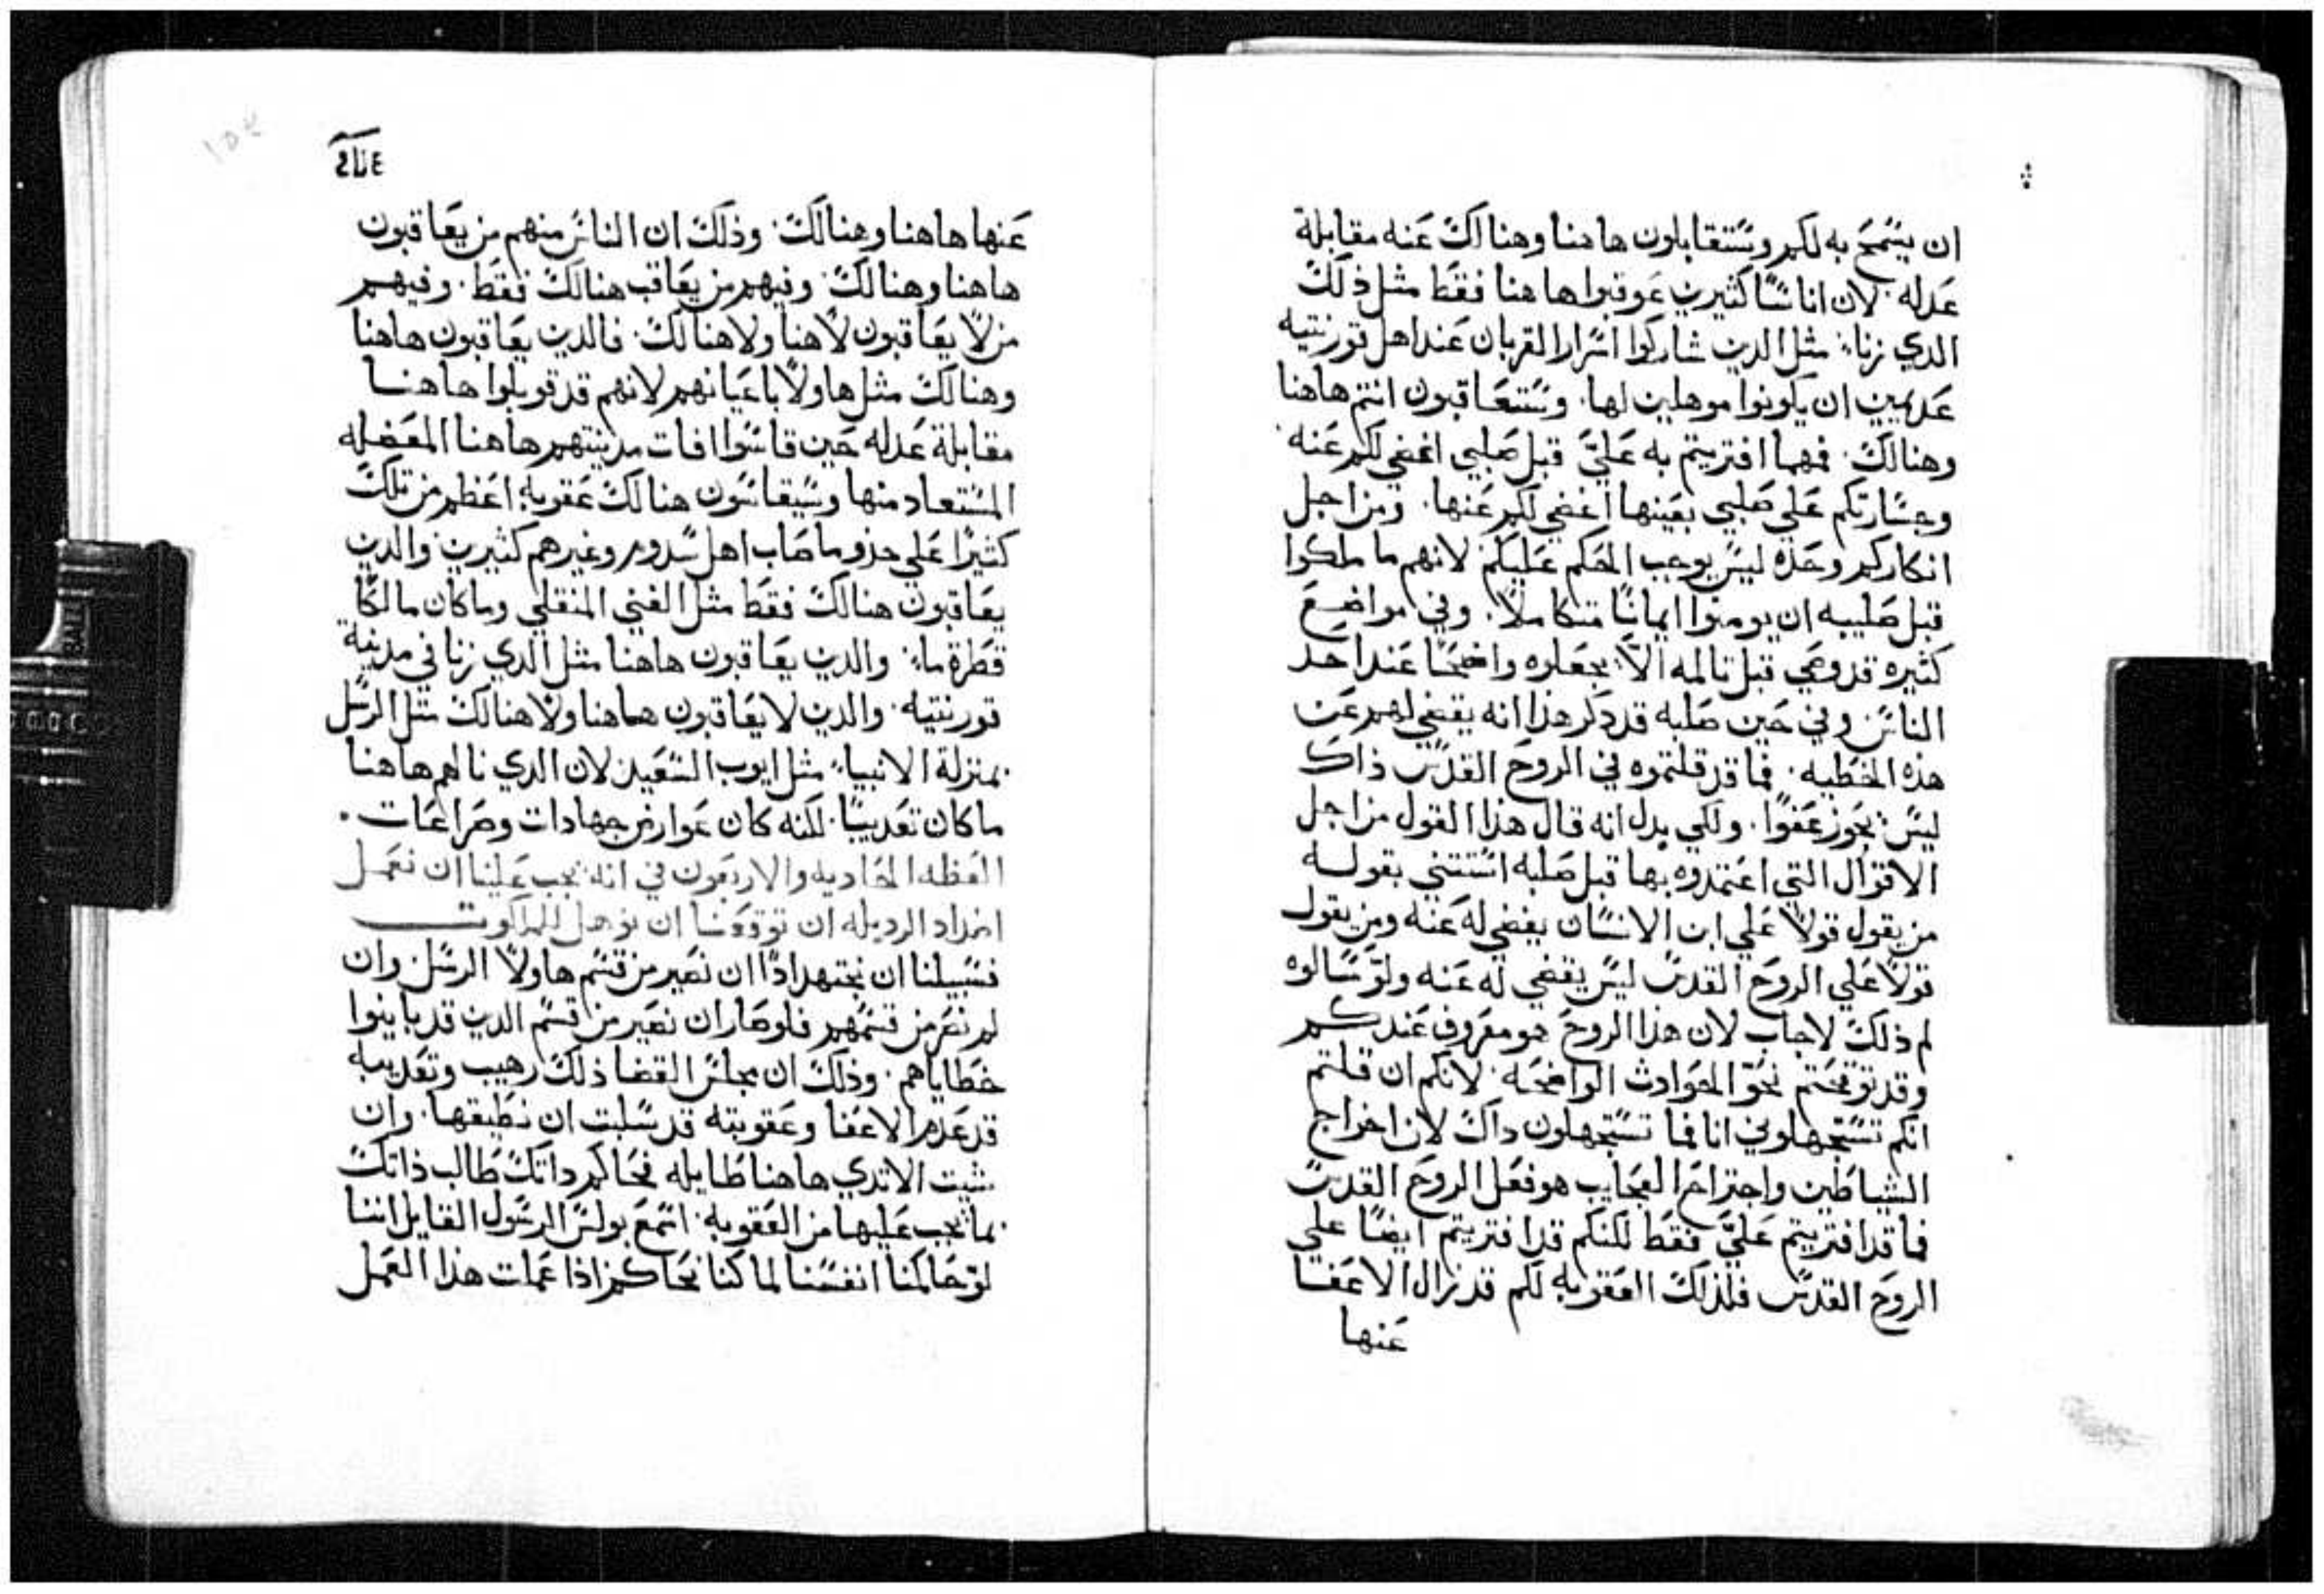 ان يسمح به لكم وستتقابلون هاهنا وهناك عنه مقابلة
عدله. لان اناسًا كثيرين عوقبوا هاهنا فقط مثل ذلك
الدي زنا. مثل الدين شاركوا اسرار القربان عند اهل قورنتيه
عديمين ان يكونوا موهلين لها. وستتعاقبون انتم هاهنا
وهنالك. فمهما افتريتم به عليَّ قبل صلبي اغضي لكم عنه
وجسارتكم علي صلبي بعينها اغضي لكم عنها. ومن اجل
انكاركم وحده ليس يوجب الحكم عليكم لانهم ما ملكوا
قبل صليبه ان يومنوا ايمانًا متكاملًا. وفي مواضع
كثيره قد وصي قبل تالمه الّا يجعلوه واضحًا عند احد
الناس وفي حين صلبه قد دكر هذا انه يغضي لهم عن
هذه الخطيه. فما قد قلتموه في الروح القدس ذاك
ليس يحوز عفوًا. ولكي يدل انه قال هذا القول من اجل
الاقوال التي اعتمدوه بها قبل صلبه استتني بقوله
من يقول قولًا علي ابن الانسان يغضي له عنه ومن يقول
قولًا علي الروح القدس ليس يغضي له عنه ولو سالوه
لم ذلك لاجاب لان هذا الروح هو معروف عندكم
وقد توقحتم نحو الحوادث الواضحه. لانكم ان قلتم
انكم تستجهلوني انا فما تستجهلون داك لان اخراج
الشياطين واجتراح العجايب هو فعل الروح القدس
فما قد افتريتم عليَّ فقط لكنكم قد افتريتم ايضًا علي
الروح القدس فلذلك العقوبه لكم قد زال الاعفا
عنها
عنها هاهنا وهنالك. وذلك ان الناس منهم من يعاقبون
هاهنا وهنالك. وفيهم من يعاقب هنالك فقط. وفيهم
من لا يعاقبون لا هنا ولا هنالك. فالدين يعاقبون هاهنا
وهنالك مثل هاولا باعيانهم لانهم قد قوبلوا هاهنا
مقابلة عدله حين قاسوا افات مدينتهم هاهنا المعضله
المستعاد منها وسيقاسون هنالك عقوبة اعظم من تلك
كثيرًا علي حذو ما صاب اهل سدوم وغيرهم كثيرين والدين
يعاقبون هنالك فقط مثل الغني المنقلي وما كان مالكًا
قطرة ماء. والدين يعاقبون هاهنا مثل الدي زنا في مدينة
قورنتيه. والدين لا يعاقبون هاهنا ولا هنالك مثل الرسل
بمنزلة الانبياء مثل ايوب السعيد لان الدي نالهم هاهنا
ما كان تعديبًا. لكنه كان عوارض جهادات وصراعات.
العظه الحاديه والاربعون في انه يجب علينا ان نعمل
اضداد الرديله ان توقعنا ان نوهل للملكوت
فسبيلنا ان نجتهد ادًا ان نصير من قسم هاولا الرسل. وان
لم نصر من قسمهم فلو صار ان نصير من قسم الدين قد باينوا
خطاياهم. وذلك ان مجلس القضا ذلك رهيب وتعديبه
قد عدم الاعفا وعقوبته قد سلبت ان نطيقها. وان
شيت الا تدي هاهنا طايله فحاكم داتك طالب ذاتك
بما يجب عليها من العقوبه. اسمع بولس الرسول القايل اننا
لو حاكمنا انفسنا لما كنا نحاكم اذا عملت هذا العمل